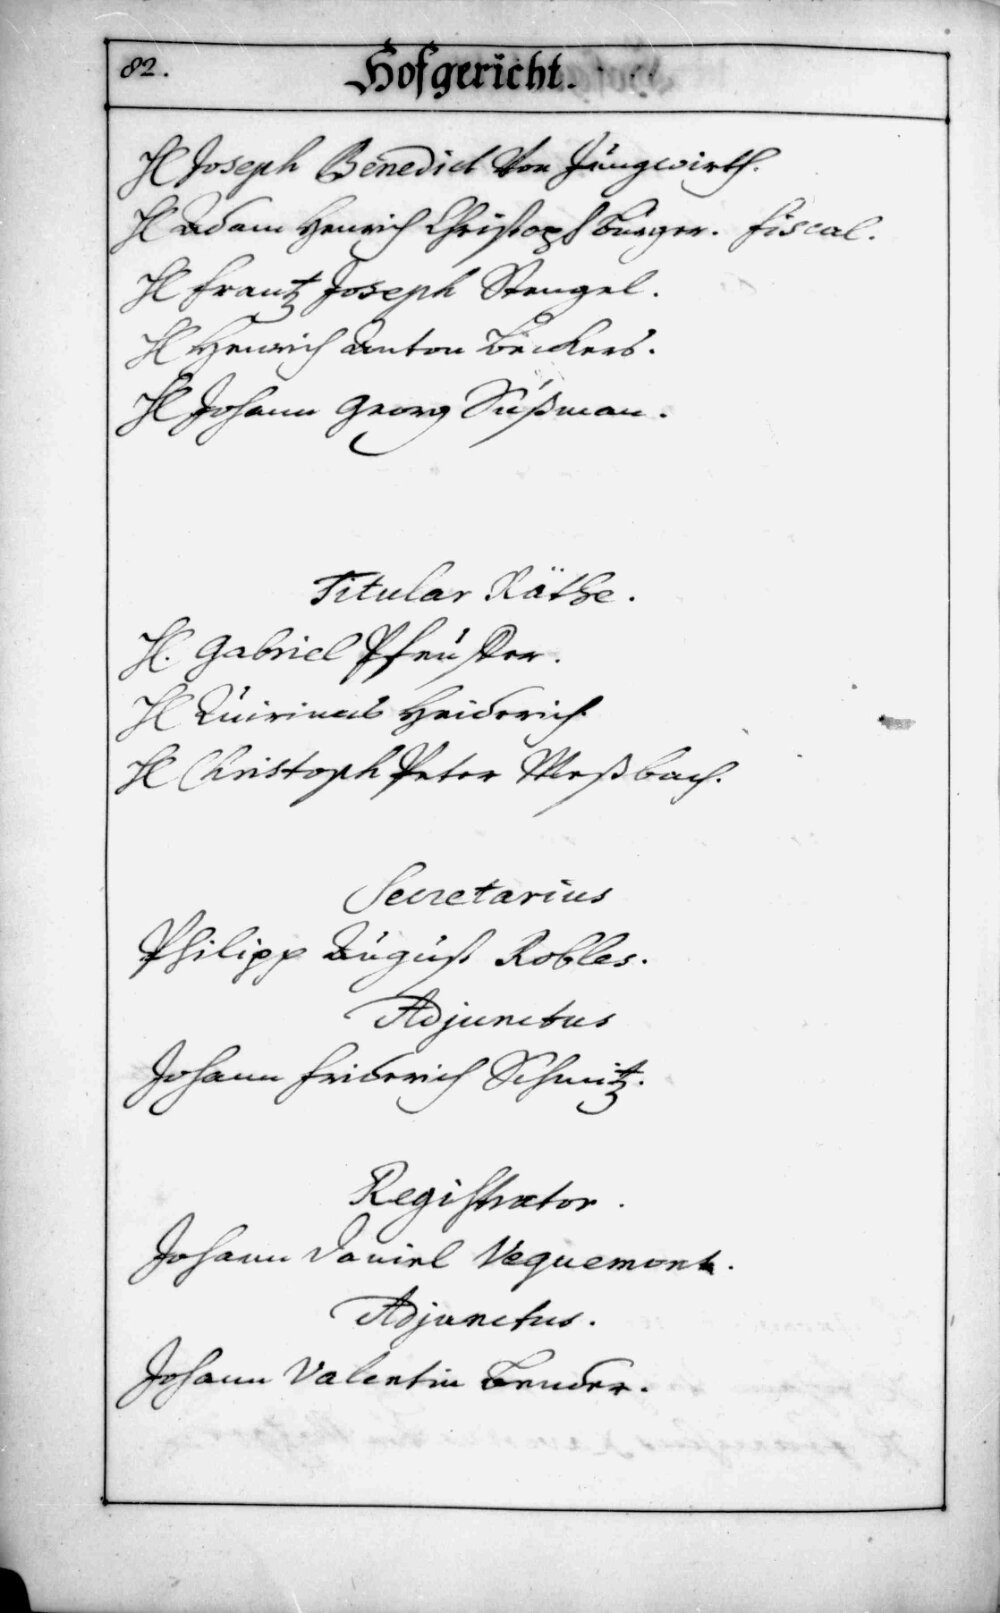 82.
Hofgericht.
H Joseph Benedict Von Jüngwirth.
H Adam Henrich Christoph Bürger. fiscal.
H frantz Joseph Stengel.
H Henrich Anton Beckers.
H Johann Georg Süßman.
Titular Räthe.
H. Gabriel
H Quirinus Heiderich.
H Christoph Peter Meßbach.
Secretarius
Philipp August Robles.
Adjunctus
Johann friderich Schmitz.
Registrator.
Johann Daniel Vequemont.
Adjunctus.
Johann Valentin Bender.